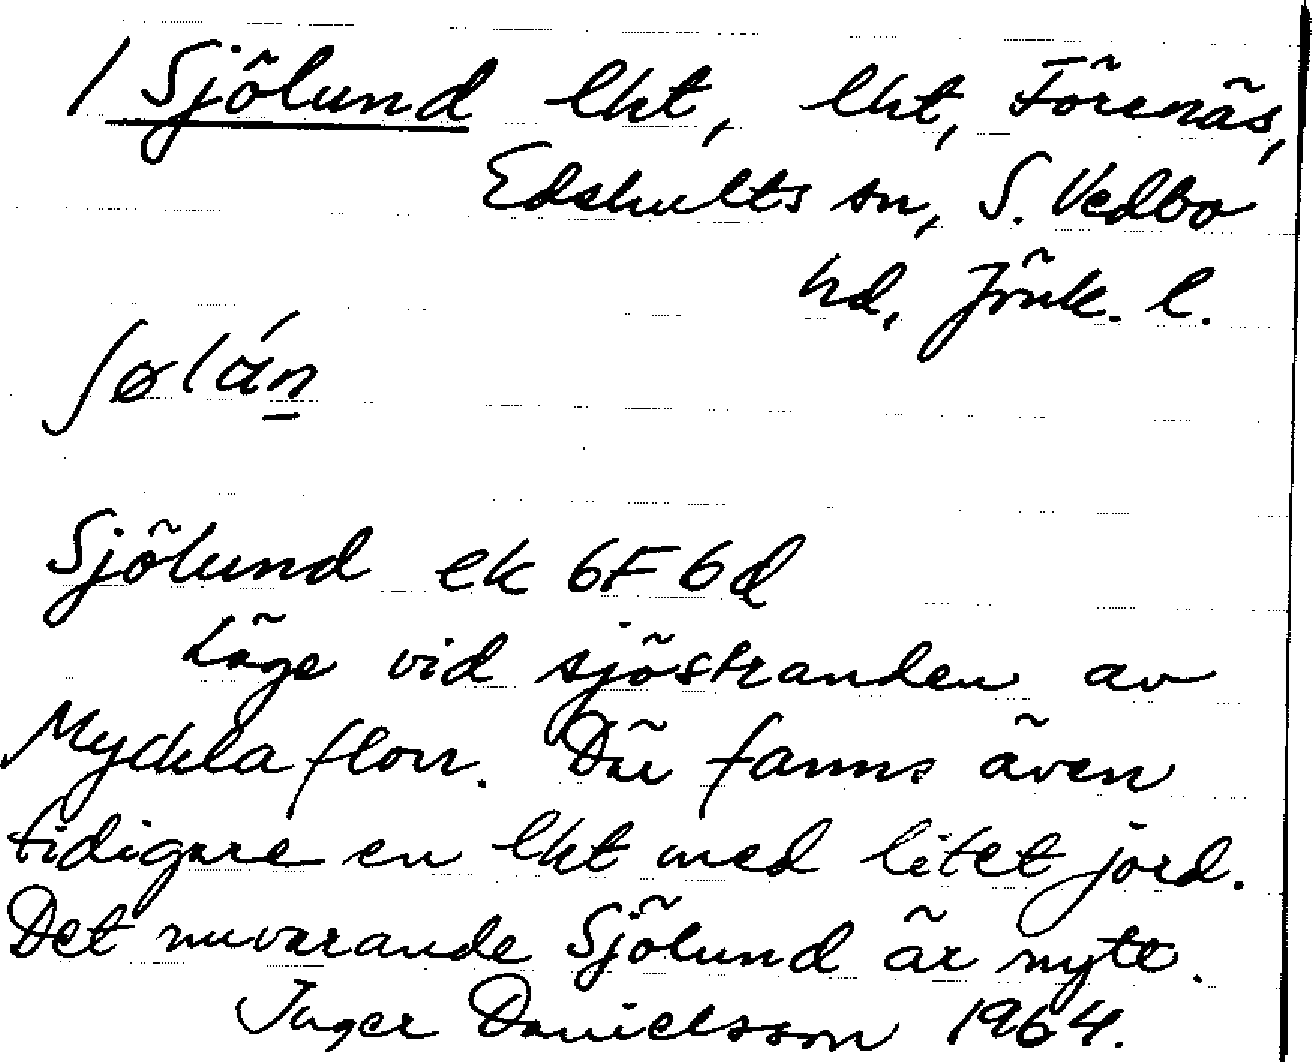 / Sjölund lht, lht, Förenäs,
Edshults sn, S. Vedbo
hd, Jönk. l.
ʃølán
Sjölund ek 6F 6d
Läge vid sjöstranden av
Mycklaflon. Där fanns även
tidigare en lht med litet jord.
Det nuvarande Sjölund är nytt.
Inger Danielsson 1964.